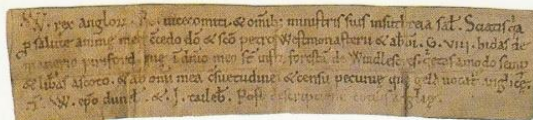 W. rex anglorū. R. vicecomiti. & omīb; ministris suis insuthreia sal. Sciatis qa
p salute anime mee ccedo dō & scō petro Westmonasterii & abbi. G. VIII. hidas de
manerio piriford que ī dnio meo st inft foresta de Windlesores. qetas amodo semp
& libas ascoto. & ab omī mea csuetudine & censu pecunie que geld vocat anglice.
T. W. epo dunel. & . I. taileb. Post descriptione totius anglie.